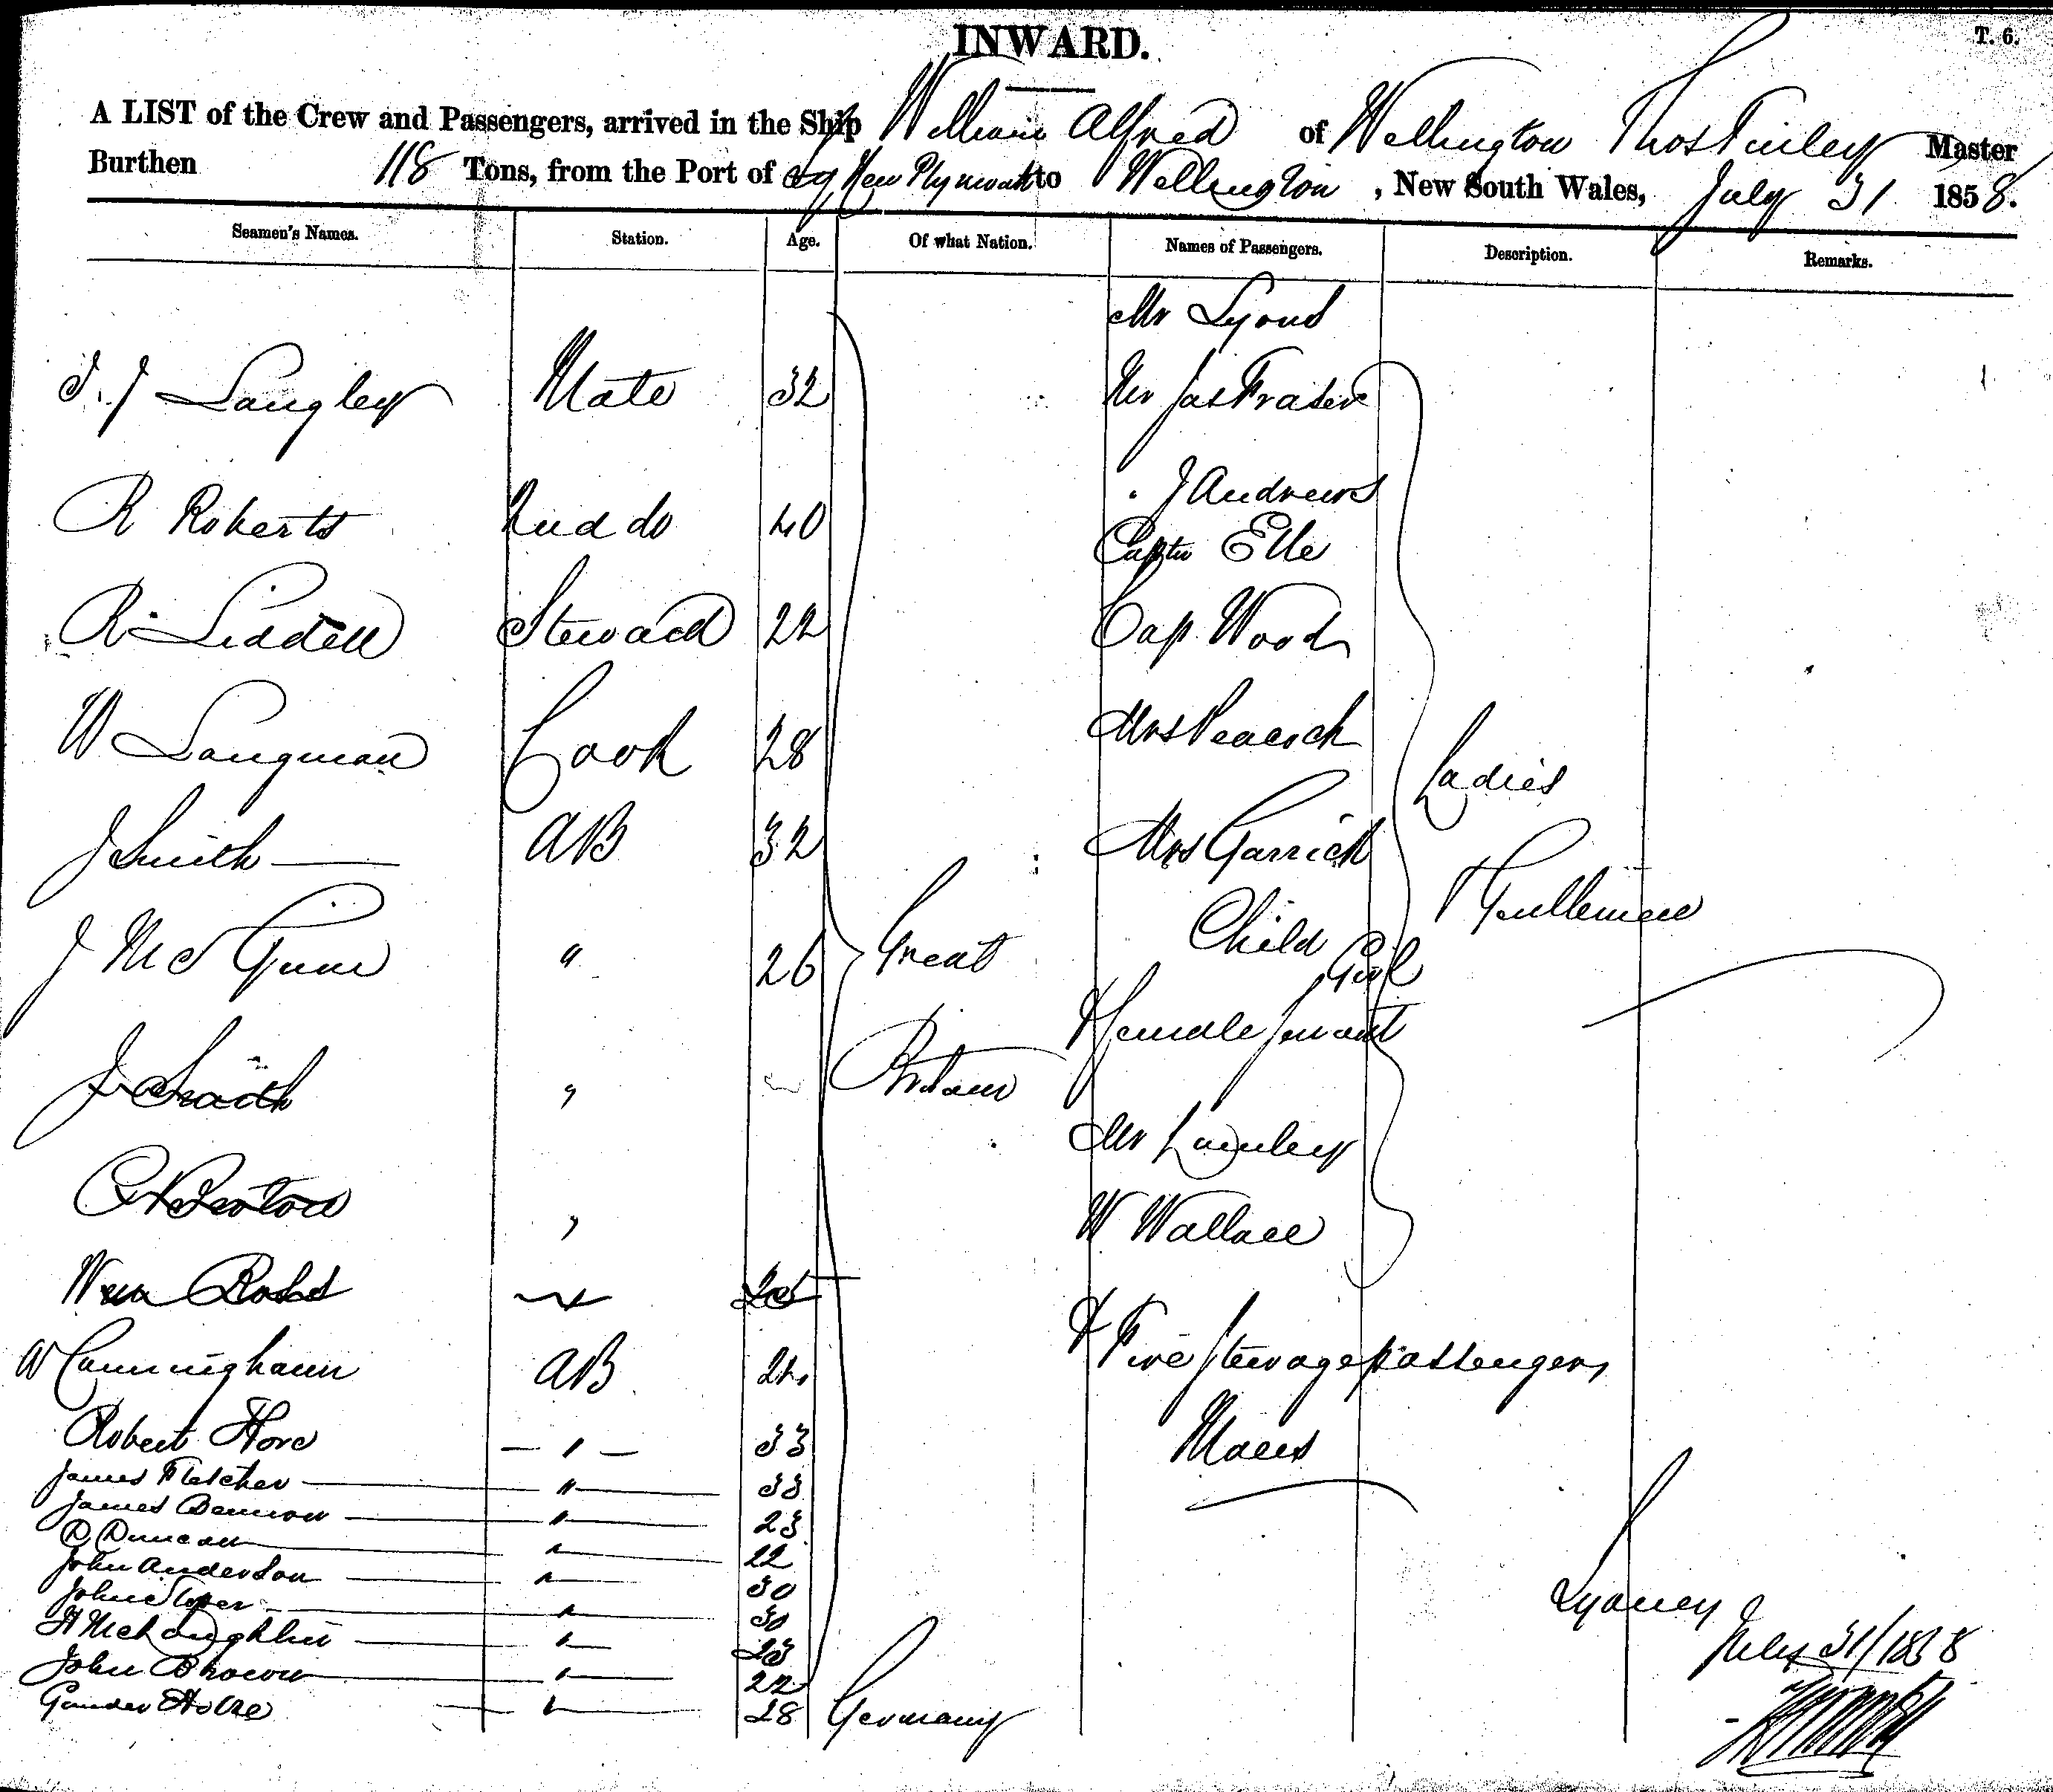 INWARD.
T. 6.
A LIST of the Crew and Passengers, arrived in the Ship William Alfred of Wellington Thos Tinley Master
Burthen 118 Tons, from the Port of New Plymouth to Wellington, New South Wales, July 31 1858.
Seamen's Names. Station. Age. Of what Nation. Names of Passengers. Description. Remarks.
Mr Lyons
J. J Langley Mate 32 Mr Jas Fraser
R Roberts 2nd do 40 J Andrews
Captn Elle
R Liddell Steward 22 Cap. Wood
W Langman Cook 28 Mrs Peacock
Ladies
J Smith AB 32 Mrs Garrick
& Gentlemen
J Mc Gunn " 26 Great Child
Girl
& female servant
J Smith " Britain
Mr Lumley
" W Wallace
Wm Ross 25
W Cunningham AB 24 & Five steerage passengers
Robert Hore " 33 Males
James Fletcher " 33
James Bennow " 23
D Duncan " 22
John Anderson " 30
John Sloper " 30
H McLaughlin " 23
John Brown " 22
Gander Holze " 28 Germany
Sydney
July 31/1858